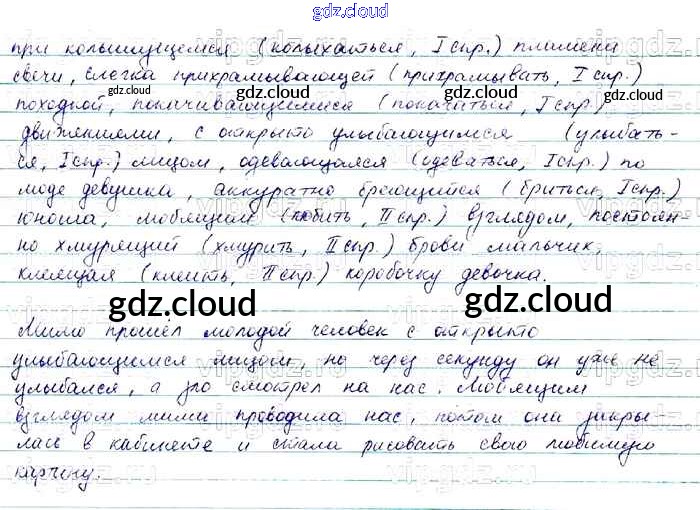 gdz.cloud
при колышущемся (колыхаться, I спр.) пламени
свечи, слегка прихрамывающей (прихрамывать, I спр.)
походкой, покачивающимися (покачаться, I спр.)
движениями, с открыто улыбающимся (улыбать-
ся, I спр.) лицом, одевающаяся (одеваться, I спр.) по
моде девушка, аккуратно бреющийся (бриться, I спр.)
юноша, любящим (любить, II спр.) взглядом, постоян-
но хмурящий (хмурить, II спр.) брови мальчик,
клеящая (клеить, II спр.) коробочку девочка.
gdz.cloud gdz.cloud
Мимо прошел молодой человек с открыто
улыбающимся лицом, но через секунду он уже не
улыбался, а зло смотрел на нас. Любящим
взглядом мама проводила нас, потом она укры-
лась в кабинете и стала рисовать свою любимую
картину.